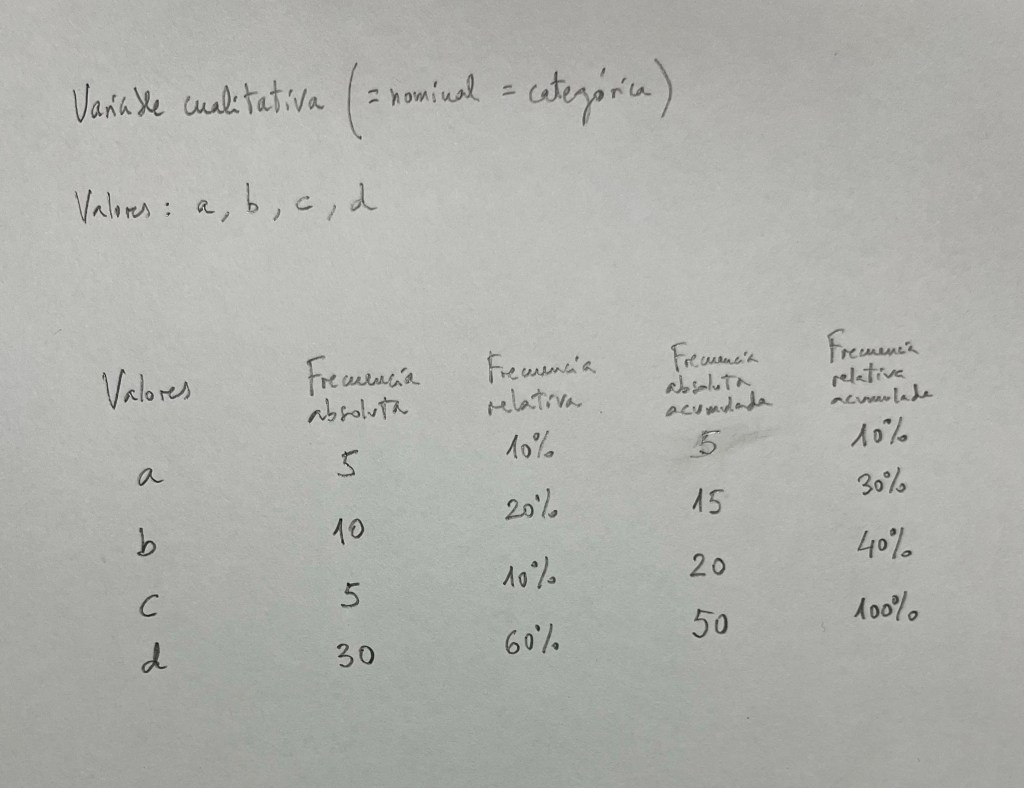 Variable cualitativa (= nominal = categórica)
Valores: a, b, c, d
Valores Frecuencia absoluta Frecuencia relativa Frecuencia absoluta acumulada Frecuencia relativa acumulada
a 5 10% 5 10%
b 10 20% 15 30%
c 5 10% 20 40%
d 30 60% 50 100%